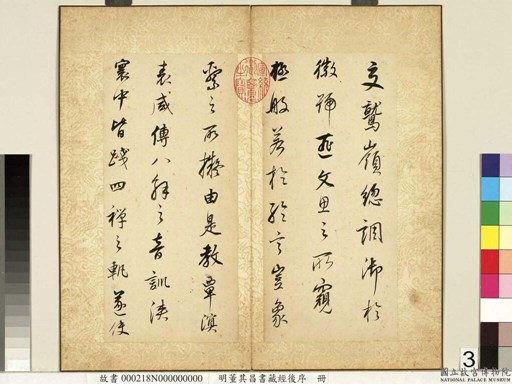 交鷲嶺總調御於
徽號匪文思之所窺
極般若於綸言豈象
繫之所擬由是教覃溟
表咸傳八解之音訓浹
寰中皆踐四禪之軌遂使
3
國立故宮博物院
NATIONAL PALACE MUSEUM
故書 000218N000000000 明董其昌書藏經後序 冊